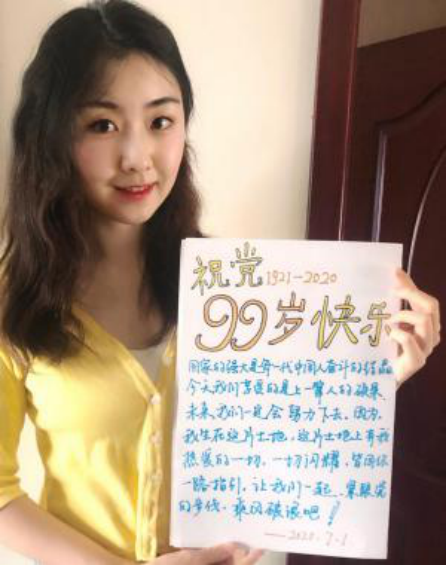 祝党1921-2020
99岁快乐
国家的强大是每一代中国人奋斗的结晶
今天我们享受的是上一辈人的硕果
未来,我们一定会努力下去,因为,
我生在这片土地,这片土地上有我
热爱的一切,一切闪耀,皆因你
一路指引,让我们一起,紧跟党
的步伐,乘风破浪吧!
——2020.7.1.